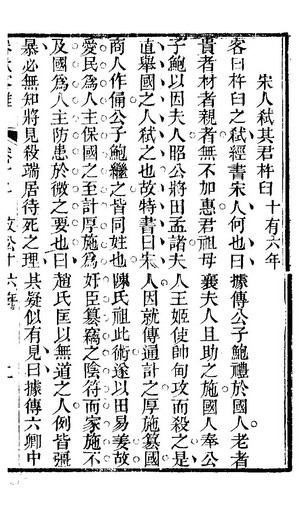 宋人弒其君杵臼十有六年
客曰杵臼之弒經書宋人何也曰據傳公子鮑禮於國人老者
貴者材者親者無不加惠君祖母襄夫人且助之施國人奉公
子鮑以因夫人昭公將田孟諸夫人王姬使帥甸攻而殺之是
直舉國之人弒之也故特書曰宋人因就傳通計之厚施篡國
商人作俑公子鮑繼之皆同姓也陳氏祖此術遂以田易姜故
愛民為人主保國之至計厚施為奸臣篡竊之陰符而家施不
及國為人主防患於微之要也曰趙氏匡以無道之人例皆彊
暴必無知將見殺端居待死之理其疑似有見曰據傳六卿中